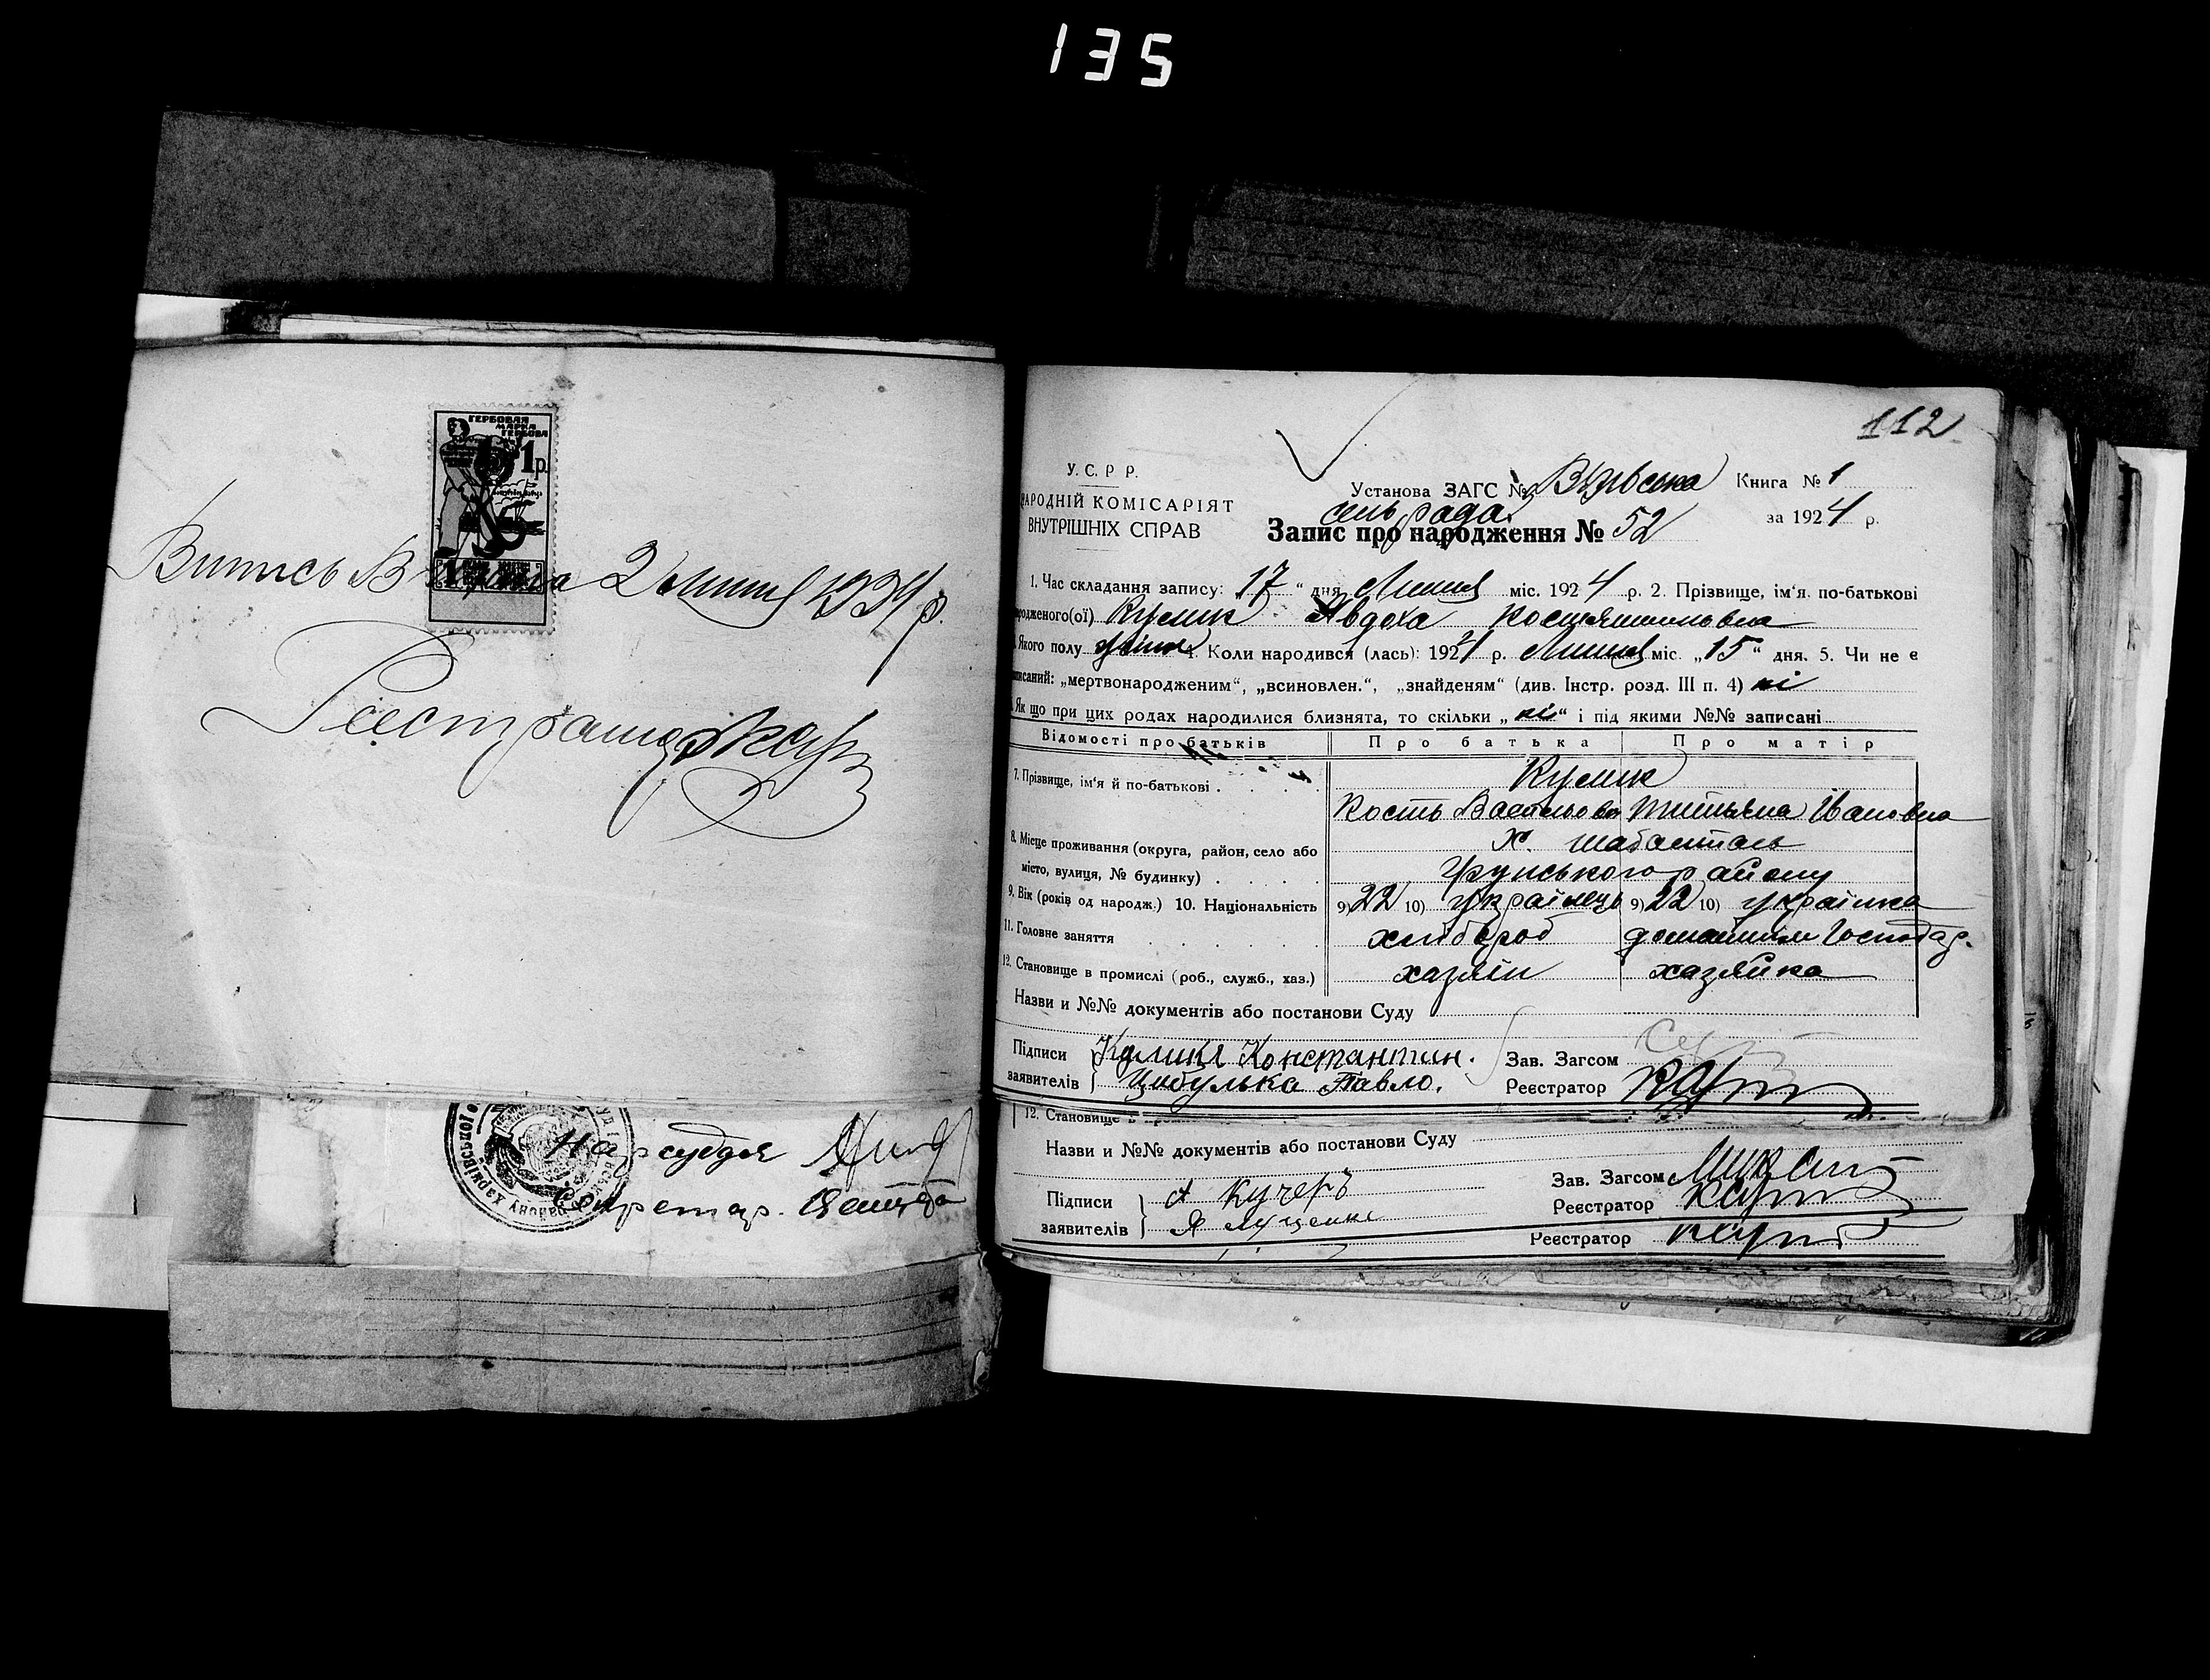 135
ГЕРБОВАЯ
МАРКА
ГЕРБОВА
1 р.
Випись 2 липня 1934 р.
Реєстратор
Нарсуддя
Секретар.
112
У. С. Р Р.
НАРОДНІЙ КОМІСАРІЯТ
ВНУТРІШНІХ СПРАВ
Установа ЗАГС № Книга № 1
сель рада
Запис про народження № 52 за 1924 р.
1. Час складання запису: 17 " дня Липня міс. 1924 р. 2. Прізвище, ім'я, по-батькові
родженого(ої) Кулик Авдоха Костянтиновна
Якого полу 4. Коли народився (лась): 1924 р. Липня міс. „15" дня. 5. Чи не є
писаний: „мертвонародженим", „всиновлен.", „знайденям" (див. Інстр. розд. III п. 4) ні
Як що при цих родах народилися близнята, то скільки „ні" і під якими №№ записані
Відомості про батьків Про батька Про матір
7. Прізвище, ім'я й по-батькові . . . . Кулик
Кость Васильови Титьяна Івановна
8. Місце проживання (округа, район, село або х.
місто, вулиця, № будинку) . . . . Грунського району
9. Вік (років од народж.) 10. Національність 9) 22 10) українець 9) 22 10) українка
11. Головне заняття . . . . . хлібороб домашнім господар.
12. Становище в промислі (роб., служб., хаз.) хазяїн хазяйка
Назви и №№ документів або постанови Суду
Підписи Кулик Константин. Зав. Загсом
заявителів Цибулька Павло. Реєстратор
12. Становище в
Назви и №№ документів або постанови Суду
Підписи А Кучеръ Зав. Загсом
заявителів Я Луценко Реєстратор
Реєстратор